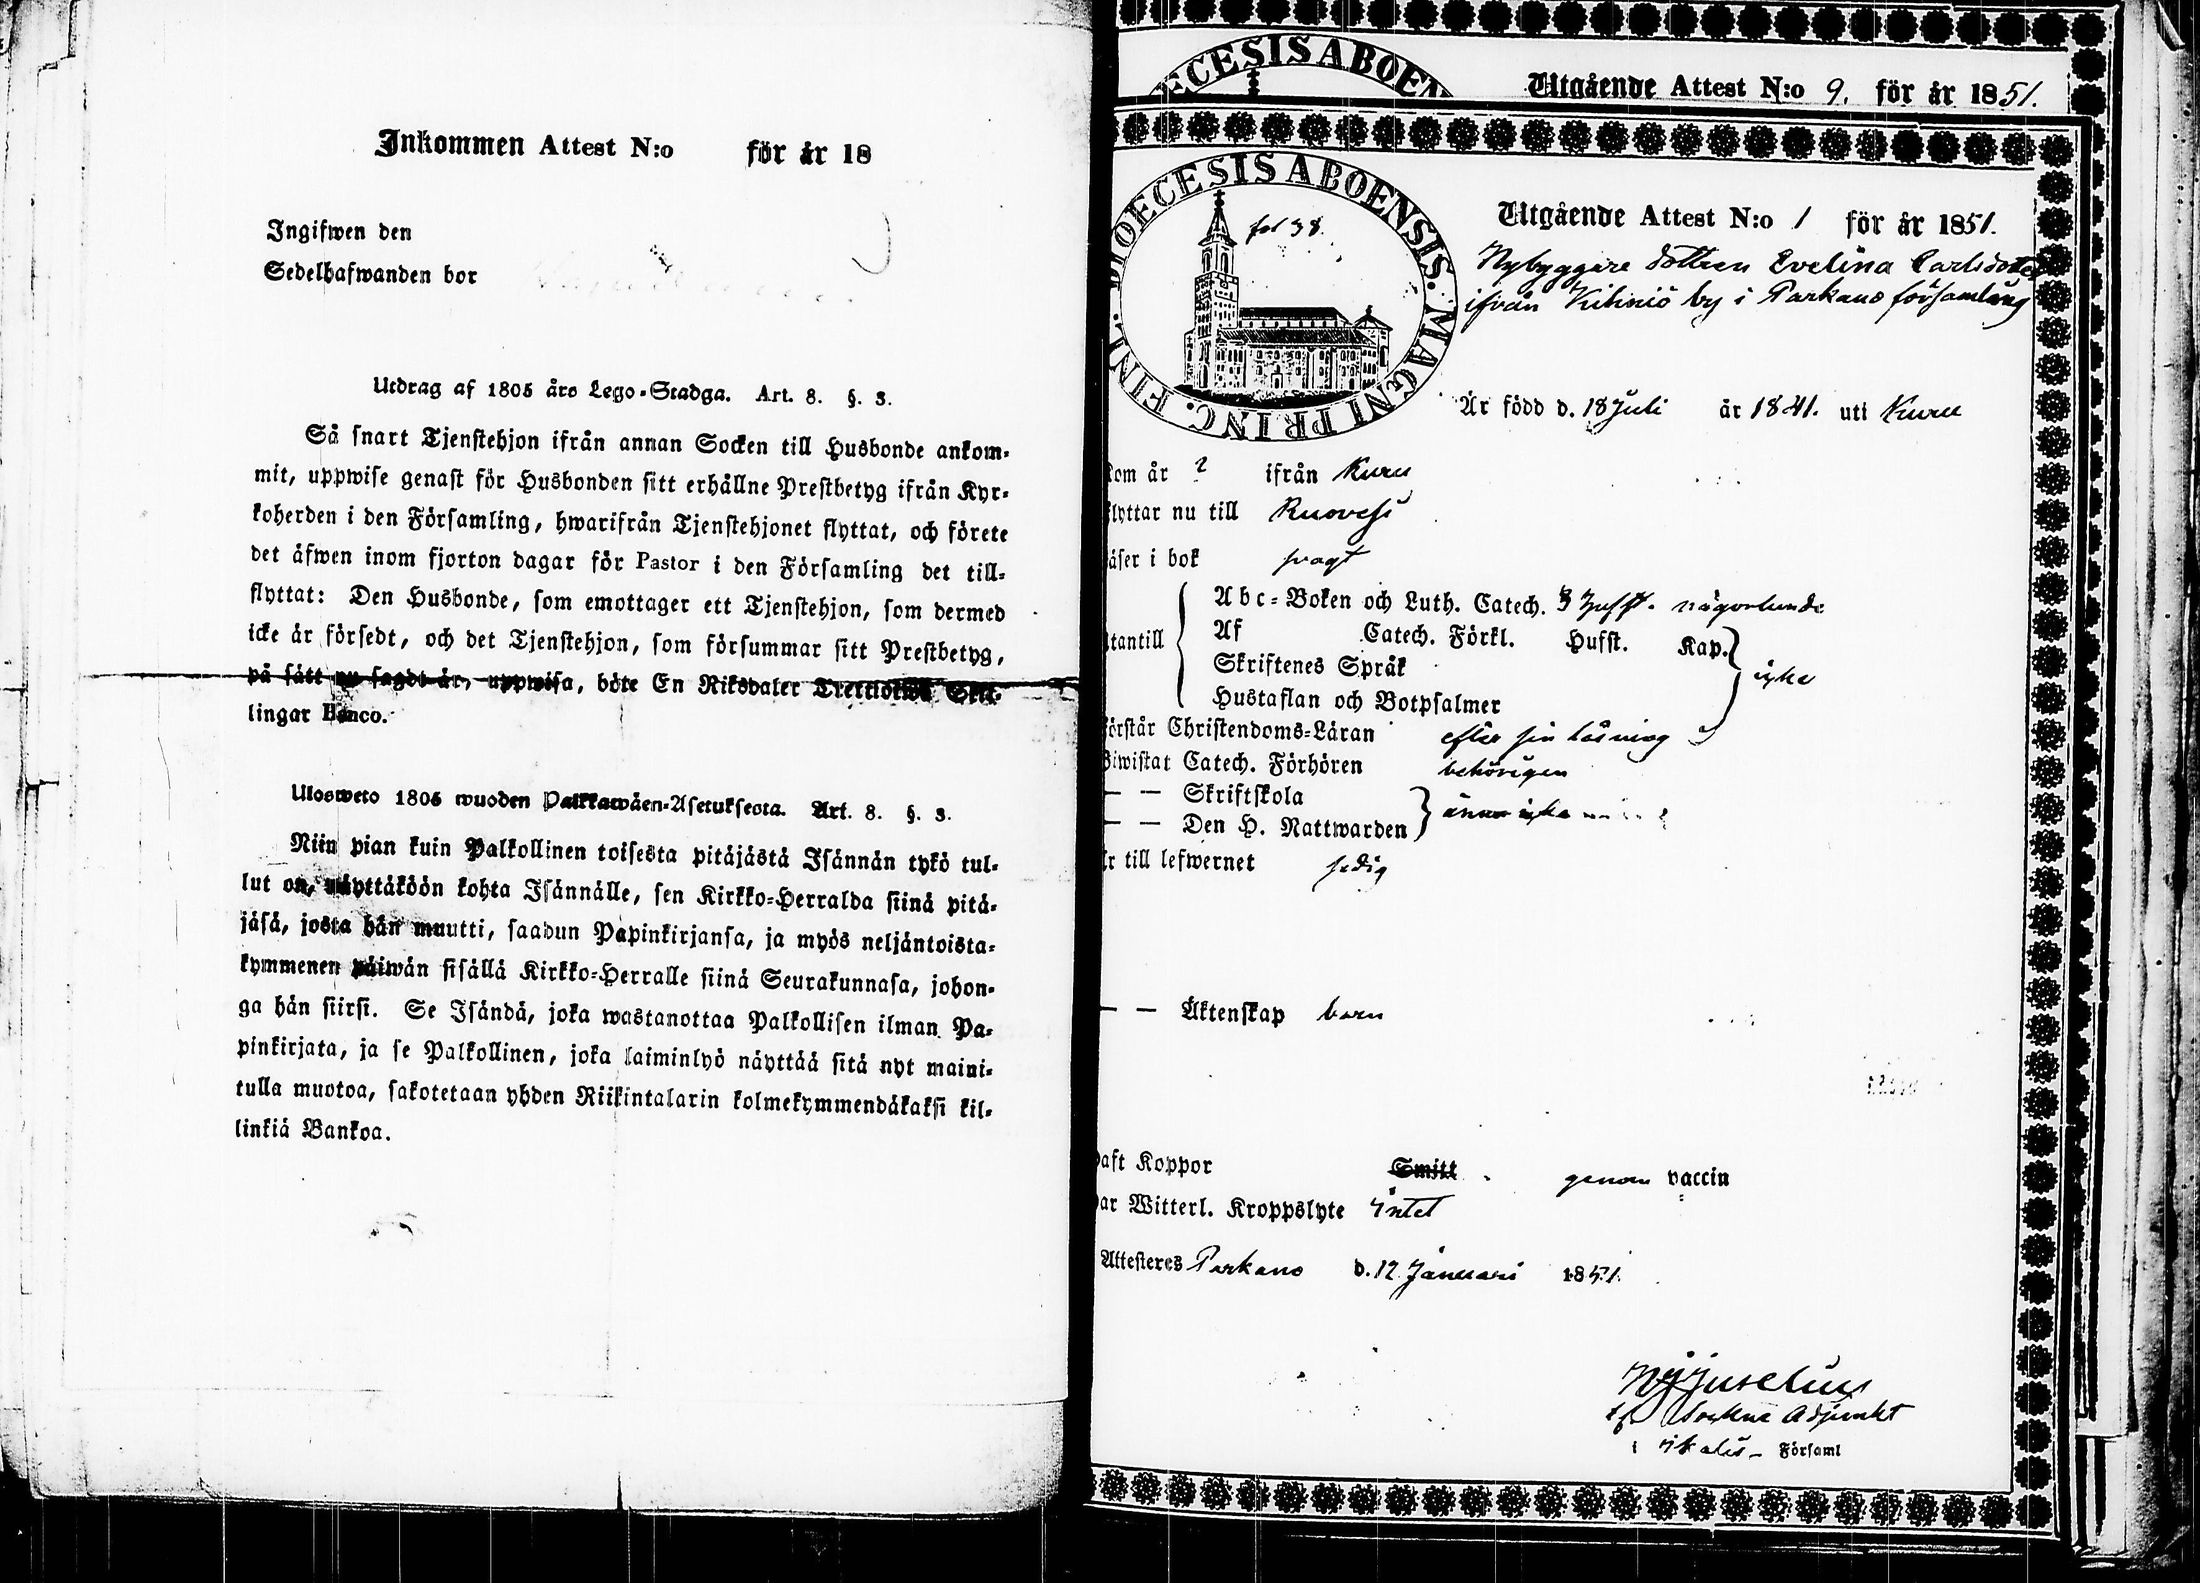 Inkommen Attest N:o för år 18
Ingifwen den
Sedelhafwanden bor
Utdrag af 1805 års Lego-Stadga. Art. 8. §. 3.
Så snart Tjenstehjon ifrån annan Socken till Husbonde ankom-
mit, uppwise genast för Husbonden sitt erhållne Prestbetyg ifrån Kyr-
koherden i den Församling, hwarifrån Tjenstehjonet flyttat, och förete
det äfwen inom fjorton dagar för Pastor i den Församling det till-
flyttat: Den Husbonde, som emottager ett Tjenstehjon, som dermed
icke är försedt, och det Tjenstehjon, som försummar sitt Prestbetyg,
på sätt nu sagdt är, uppwisa, böte En Riksdaler Trettiotwå Skil-
lingar Banco.
Ulosweto 1805 wuoden Palkkawäen-Asetuksesta. Art. 8. §. 3.
Niin pian kuin Palkollinen toisesta pitäjästä Isännän tykö tul-
lut on, näyttäköön kohta Isännälle, sen Kirkko-Herralda siinä pitä-
jäsä, josta hän muutti, saadun Papinkirjansa, ja myös neljäntoista-
kymmenen päiwän sisällä Kirkko-Herralle siinä Seurakunnasa, johon-
ga hän siirsi. Se Isändä, joka wastanottaa Palkollisen ilman Pa-
pinkirjata, ja se Palkollinen, joka laiminlyö näyttää sitä nyt maini-
tulla muotoa, sakotetaan yhden Riikintalarin kolmekymmendäkaksi kil-
linkiä Bankoa.
ECESIS ABOEN
Utgående Attest N:o 9. för år 1851.
DIOECESIS ABOENSIS. MAGNI PRINC. FINL.
fol 38.
Utgående Attest N:o 1 för år 1851.
Nybyggare dottren Evelina Carlsdotter
ifrån Kihniö by i Parkano församling
Är född d. 18 Juli år 1841. uti Kuru
kom år ? ifrån Kuru
flyttar nu till Ruovesi
läser i bok svagt
Utantill
Abc-Boken och Luth. Catech. 3 Hufst. någorlunda
Af Catech. Förkl. Hufst. Kap.
Skriftenes Språk
Hustaflan och Botpsalmer
icke
förstår Christendoms-Läran efter sin läsning
Biwistat Catech. Förhören behörigen
— — Skriftskola
— — Den H. Nattwarden
ännu icke
är till lefwernet sedig
— — Äktenskap barn
haft Koppor Smitt genom vaccin
har Witterl. Kroppslyte intet
Attesteres Parkano d. 12 Januari 1851.
tf Sockne Adjunkt
i Ikalis Församl